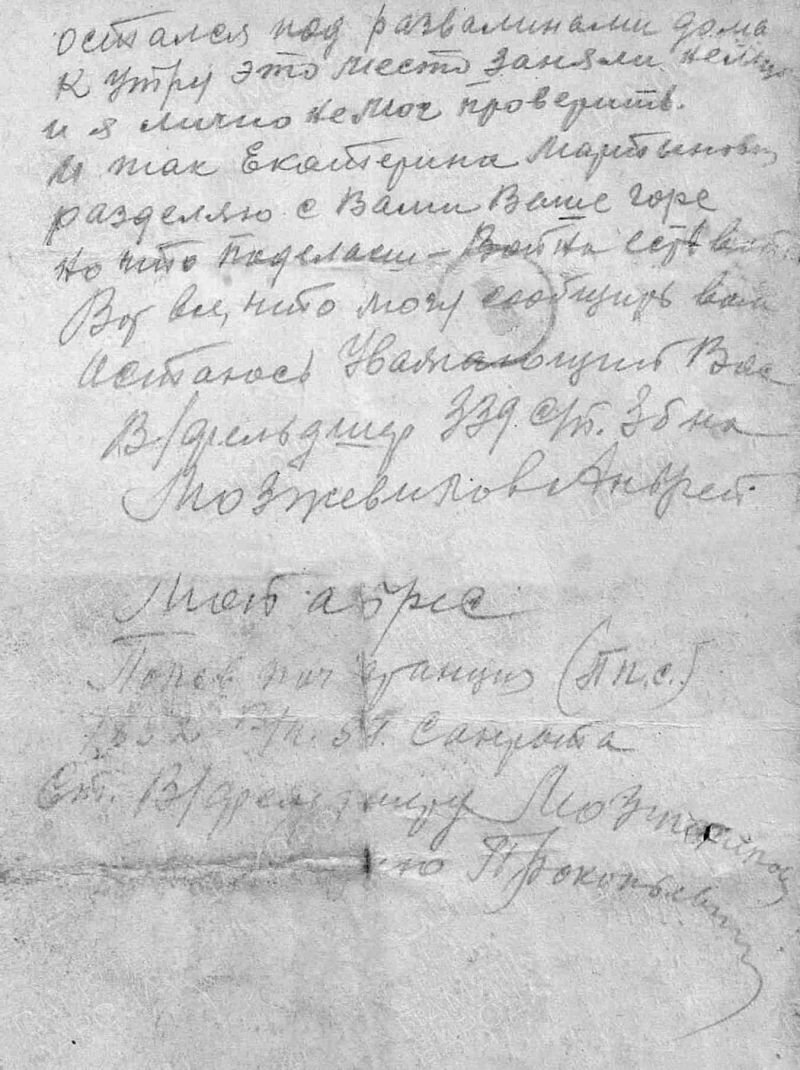 остался под развалинами дома
к утру это место заняли немцы
и я лично не мог проверить.
И так Екатерина Мартыновн
разделяю с Вами Ваше горе
но что поделаеш – Война есть
Вот все, что могу сообщить вам
Остаюсь Уважающий Вас
В/фельдшер 339 с/п. 3 б на
Мозжевилов Андрей.
Мой адрес
Полев поч станция (Пп.с.)
с/п. Санрота
Ст. В/фельдшеру
ю Прокопьевич